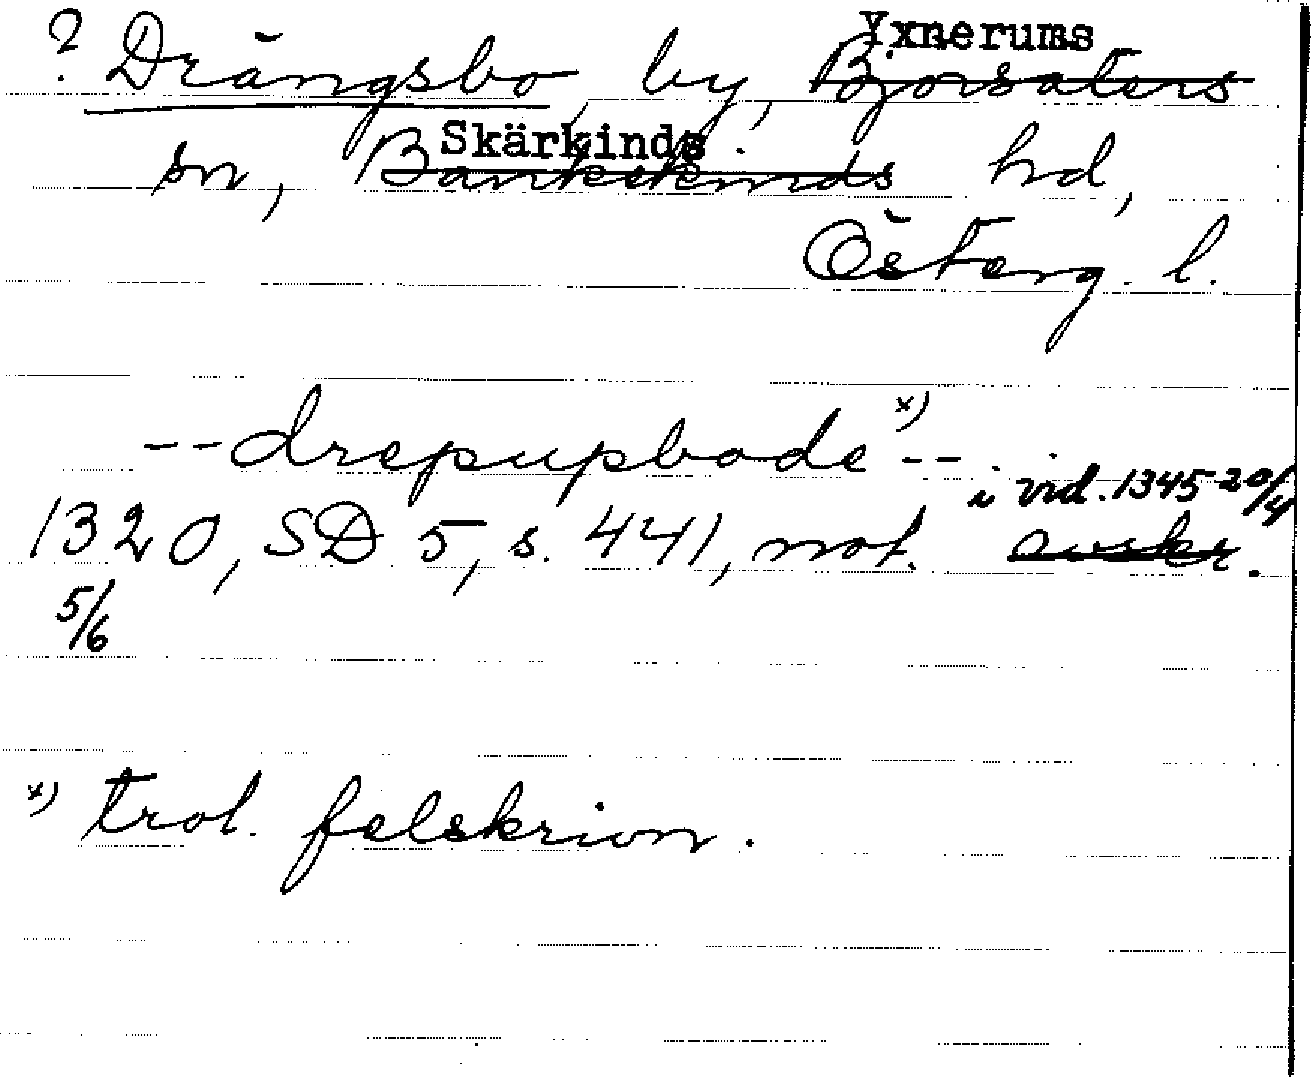 Yxnerums
? Drängsbo, by, Björsäters
Skärkinds
sn, Bankekinds hd,
Österg. l.
--drepupbode x) --
i vid. 1345 20/4
1320, SD 5, s. 441, not. avskr.
5/6
x) trol. felskrivn.